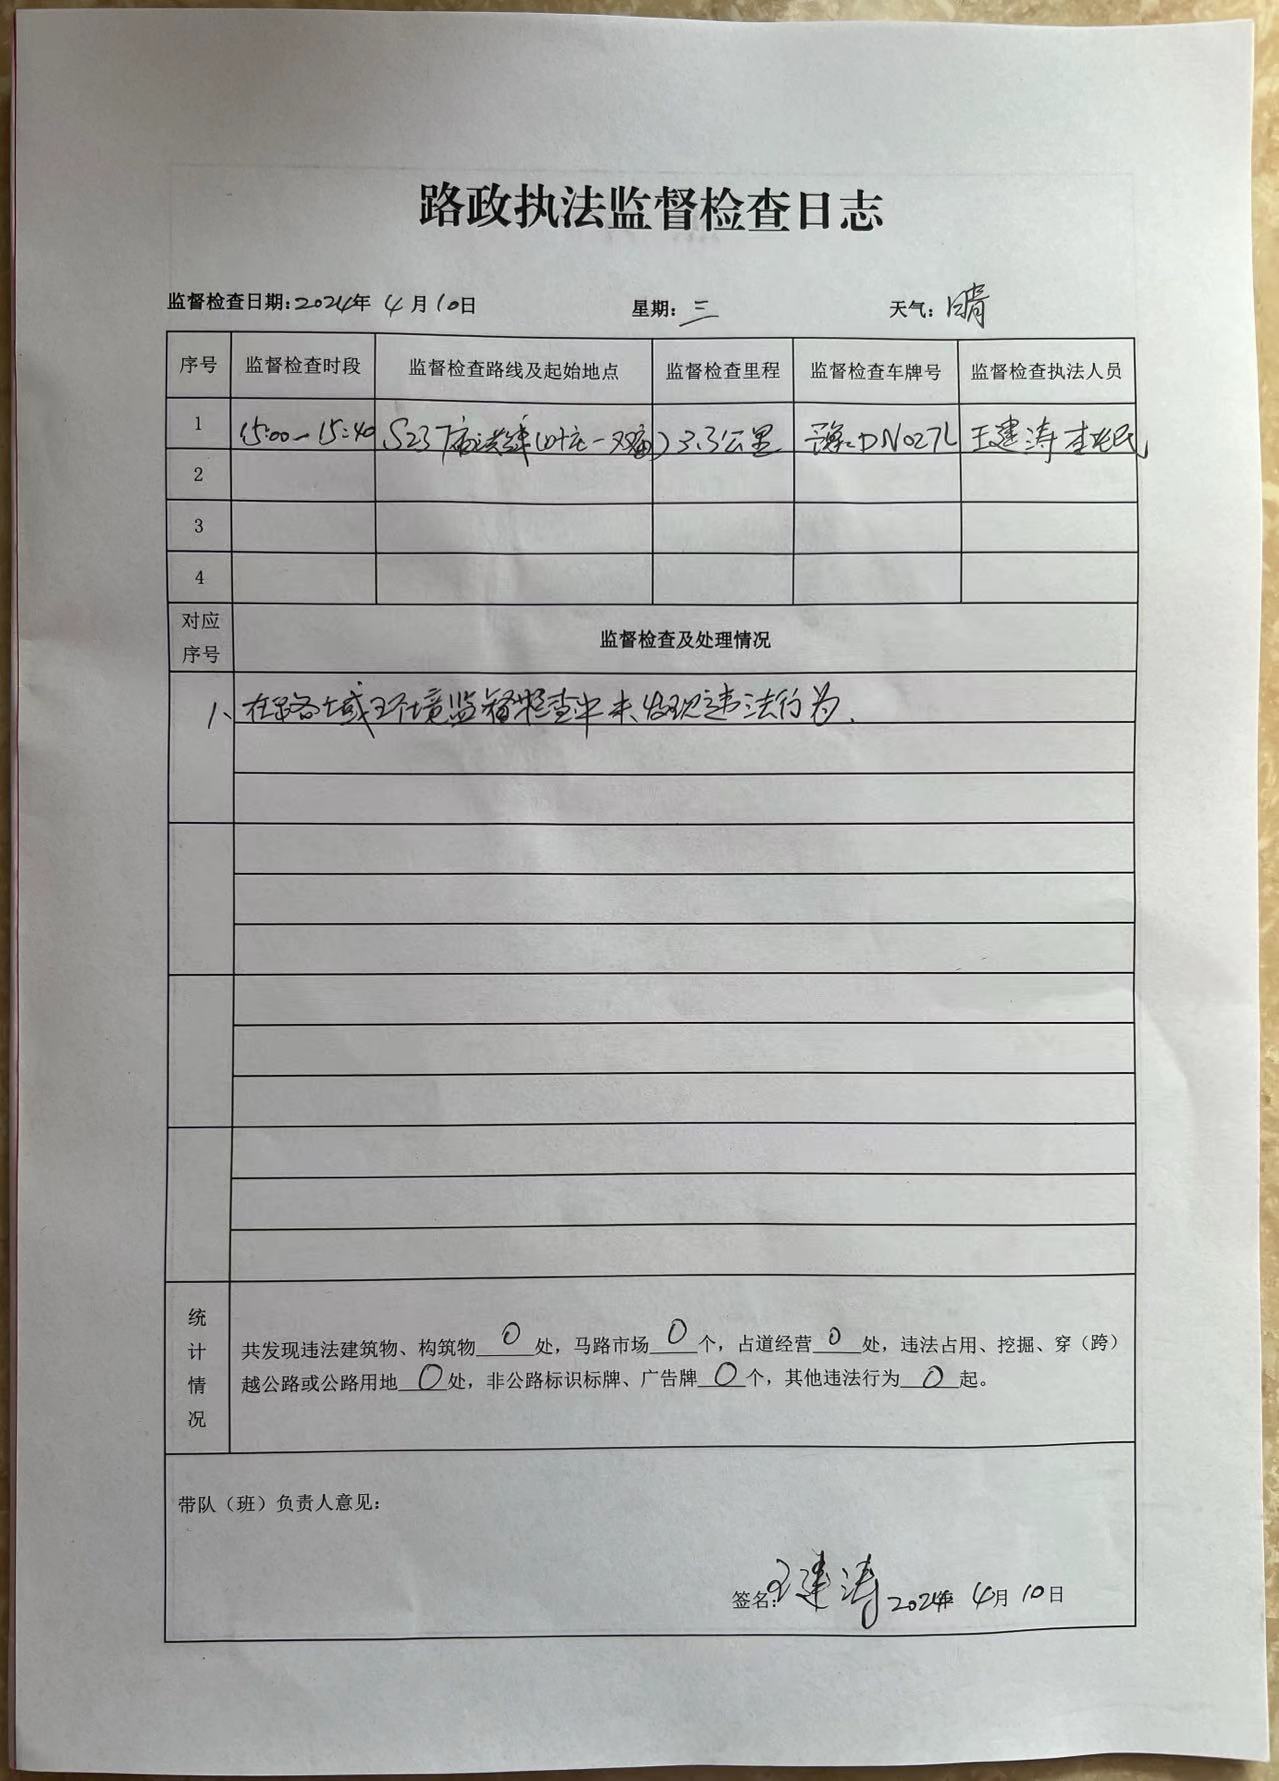 路政执法监督检查日志
监督检查日期:2024年 4月10日 星期:三 天气:晴
序号 监督检查时段 监督检查路线及起始地点 监督检查里程 监督检查车牌号 监督检查执法人员
1 15:00-15:40 S237 3.3公里 豫DN027L 王建涛
2
3
4
对应
序号
监督检查及处理情况
1、在路域环境监督检查中未发现违法行为.
统
计
情
况
共发现违法建筑物、构筑物0处，马路市场0个，占道经营0处，违法占用、挖掘、穿（跨）
越公路或公路用地0处，非公路标识标牌、广告牌0个，其他违法行为0起。
带队（班）负责人意见：
签名:王建涛 2024年 4月10日